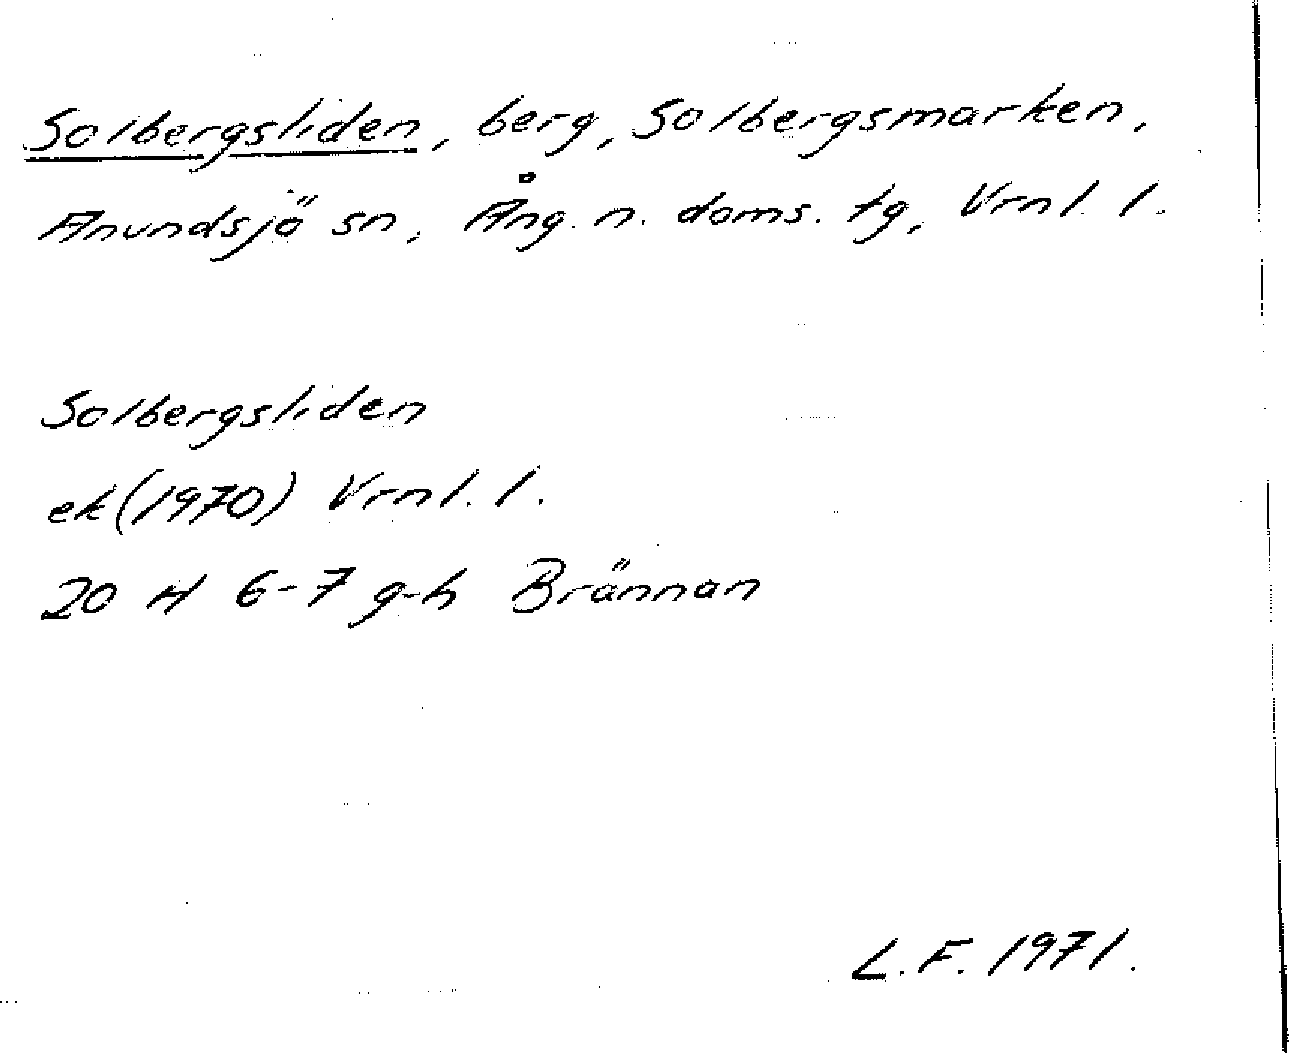 Solbergsliden, berg, Solbergsmarken,
Anundsjö sn, Ång. n. doms. tg, Vrnl. l.
Solbergsliden
ek (1970) Vrnl. l.
20 H 6-7 g-h Brännan
L. F. 1971.